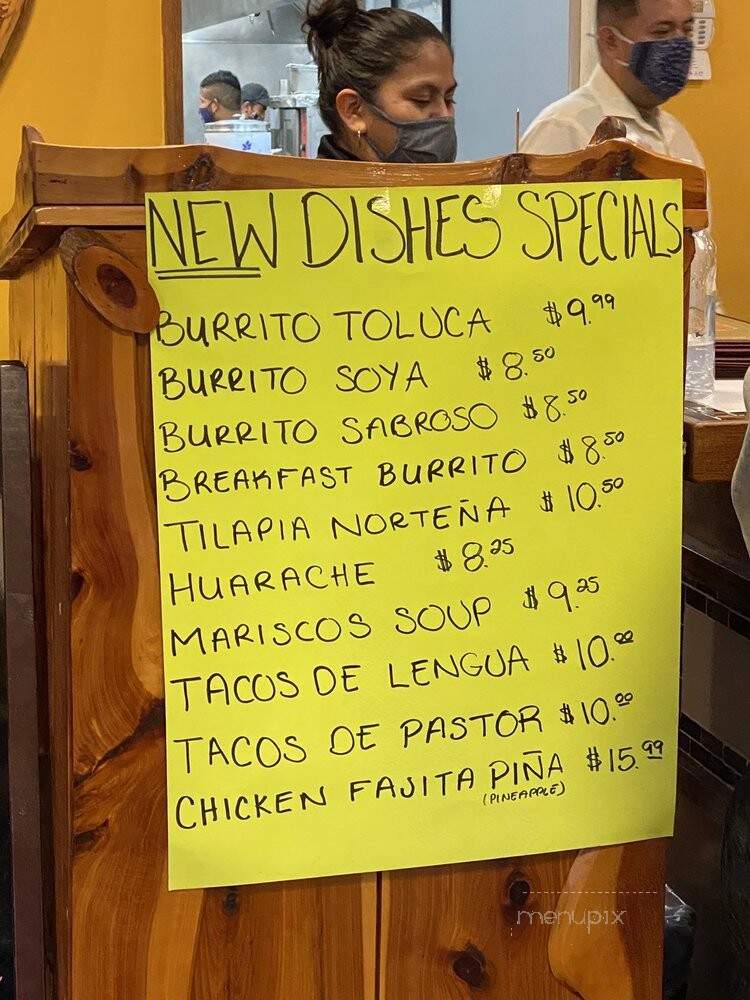 NEW DISHES SPECIALS
BURRITO TOLUCA $9.99
BURRITO SOYA $8.50
BURRITO SABROSO $8.50
BREAKFAST BURRITO $8.50
TILAPIA NORTEÑA $10.50
HUARACHE $8.25
MARISCOS SOUP $9.25
TACOS DE LENGUA $10.00
TACOS DE PASTOR $10.00
CHICKEN FAJITA PIÑA $15.99
(PINEAPPLE)
menupix